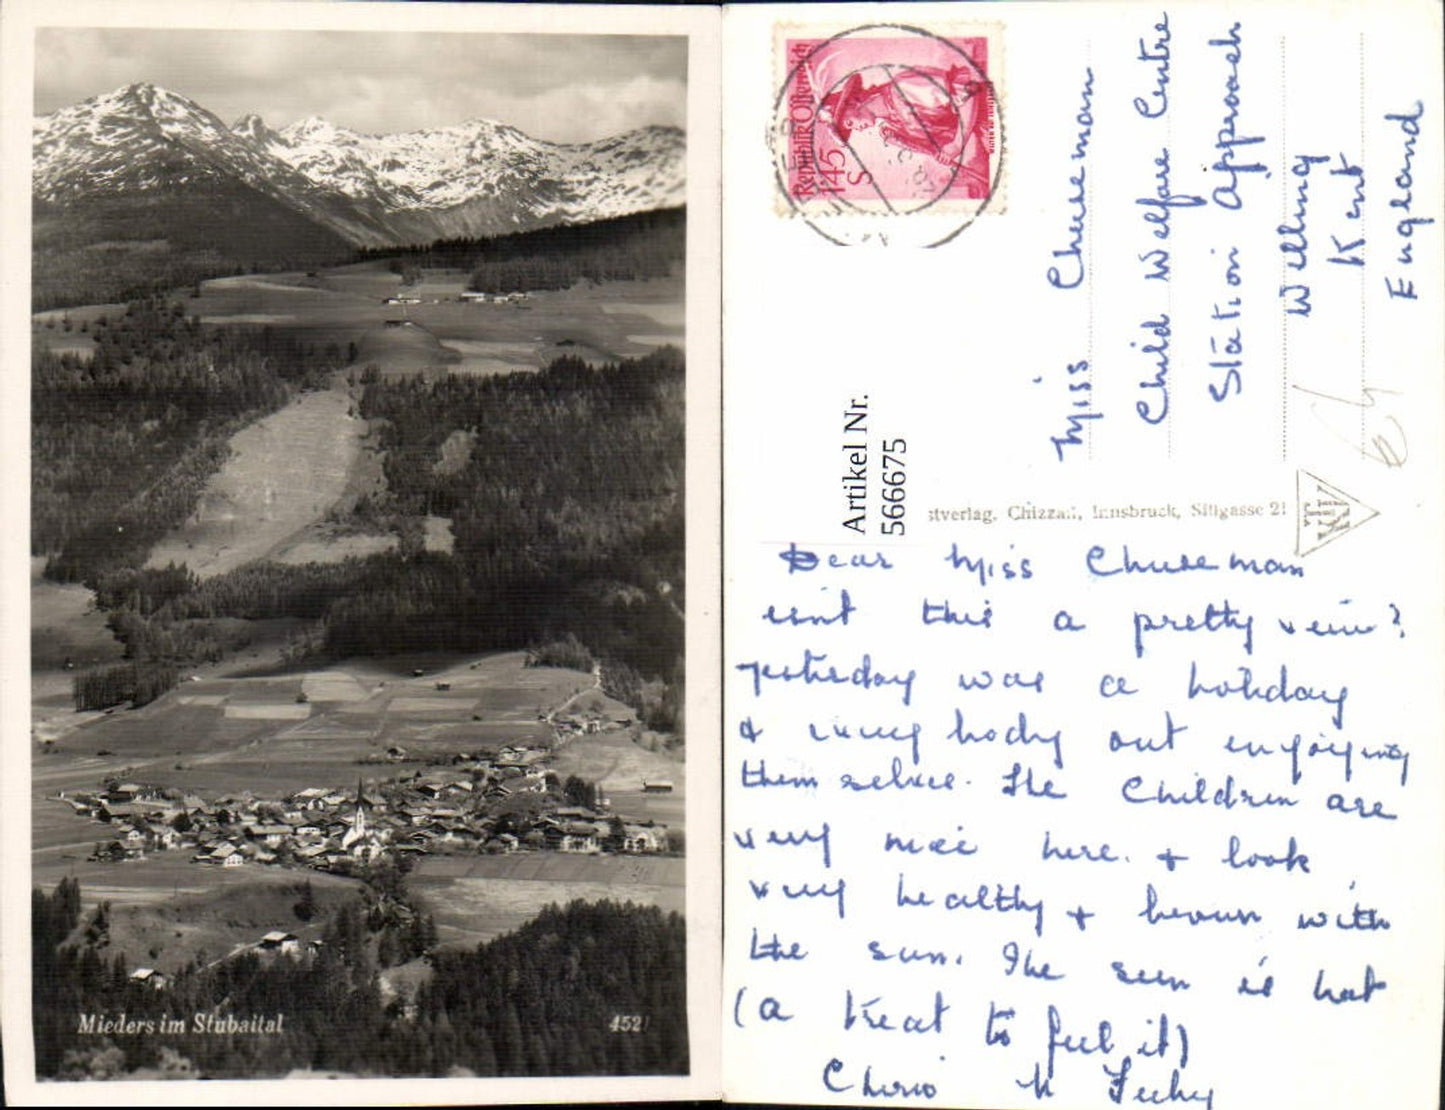 Mieders im Stubaital
452
Republik Österreich
1.45
S
Miss Chuseman
Child Welfare Centre
Station Approach
Welling
Kent
England
Artikel Nr.
566675
stverlag, Chizzali, Innsbruck, Sillgasse 21
Dear Miss Chuseman
isnt this a pretty veiw?
yesterday was a holiday
& every body out enjoying
themselves. The Children are
very nice here. + look
very healthy + brown with
the sun. The sun is hot
(a treat to feel it)
Cherio M